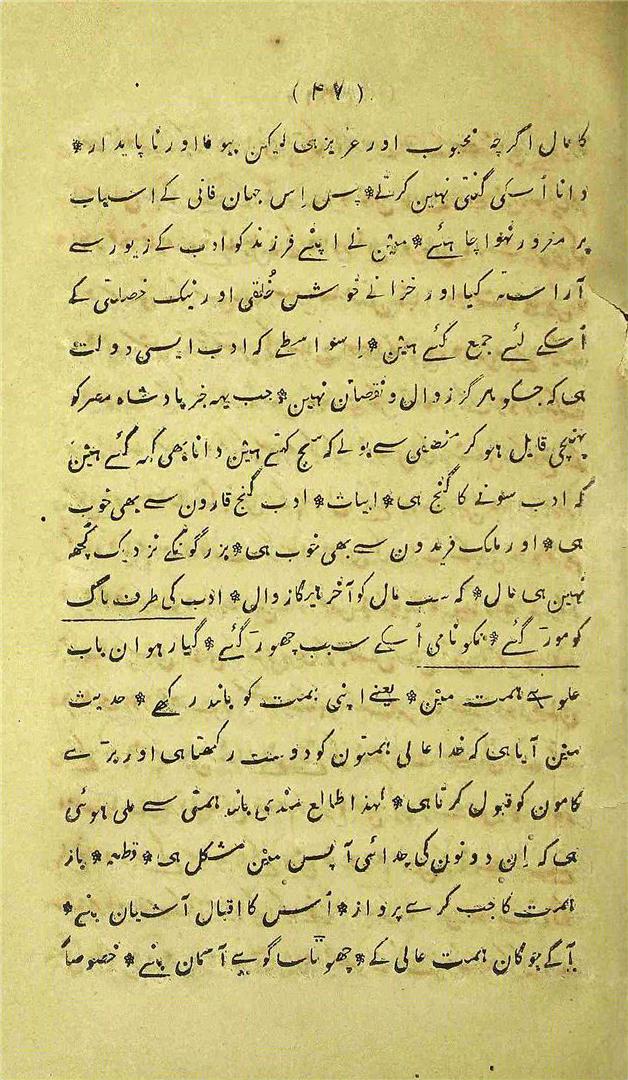 ( ۴۷ )
کا مال اگرچہ محبوب اور عزیز ہی لیکن بیوفا اور ناپایدار *
دانا اُسکی گنتی نہین کرتے * پس اِس جہان فانی کے اسباب
پر مغرور نہوا چاہئے * مین نے اپنے فرزند کو ادب کے زیور سے
آراستہ کیا اور خزانے خوش خُلقی اور نیک خصلتی کے
اُسکے لئے جمع کئے ہین * اِسواسطے کہ ادب ایسی دولت
ہی کہ جسکو ہرگز زوال و نقصان نہین * جب یہہ خبر پادشاہ مصر کو
پہنچی قایل ہو کر منصفی سے بولے کہ سچ کہتے ہین دانا بھی کہہ گئے ہین
کہ ادب سونے کا گنج ہی * ابیات * ادب گنج قارون سے بھی خوب
ہی * اور ملک فریدون سے بھی خوب ہی * بزرگونکے نزدیک کُچھہ
نہین ہی مال * کہ سب مال کو آخر ہیگا زوال * ادب کی طرف باگ
کو موڑ گئے * نکونامی اُسکے سبب چھوڑ گئے * گیارہوان باب
علو ہمت مین * یعنے اپنی ہمت کو بلند رکھے * حدیث
مین آیا ہی کہ خدا عالی ہمتون کو دوست رکھتا ہی اور بڑے
کامون کو قبول کرتا ہی * لہذا طالع مندی بلند ہمتی سے ملی ہوئی
ہی کہ اِن دونون کی جدائی آپس مین مشکل ہی * قطعہ * باز
ہمت کا جب کرے پرواز * اُس کا اقبال آشیان بنے *
آگے چوگان ہمت عالی کے * چھوٹا سا گویے آسمان بنے * خصوصاً